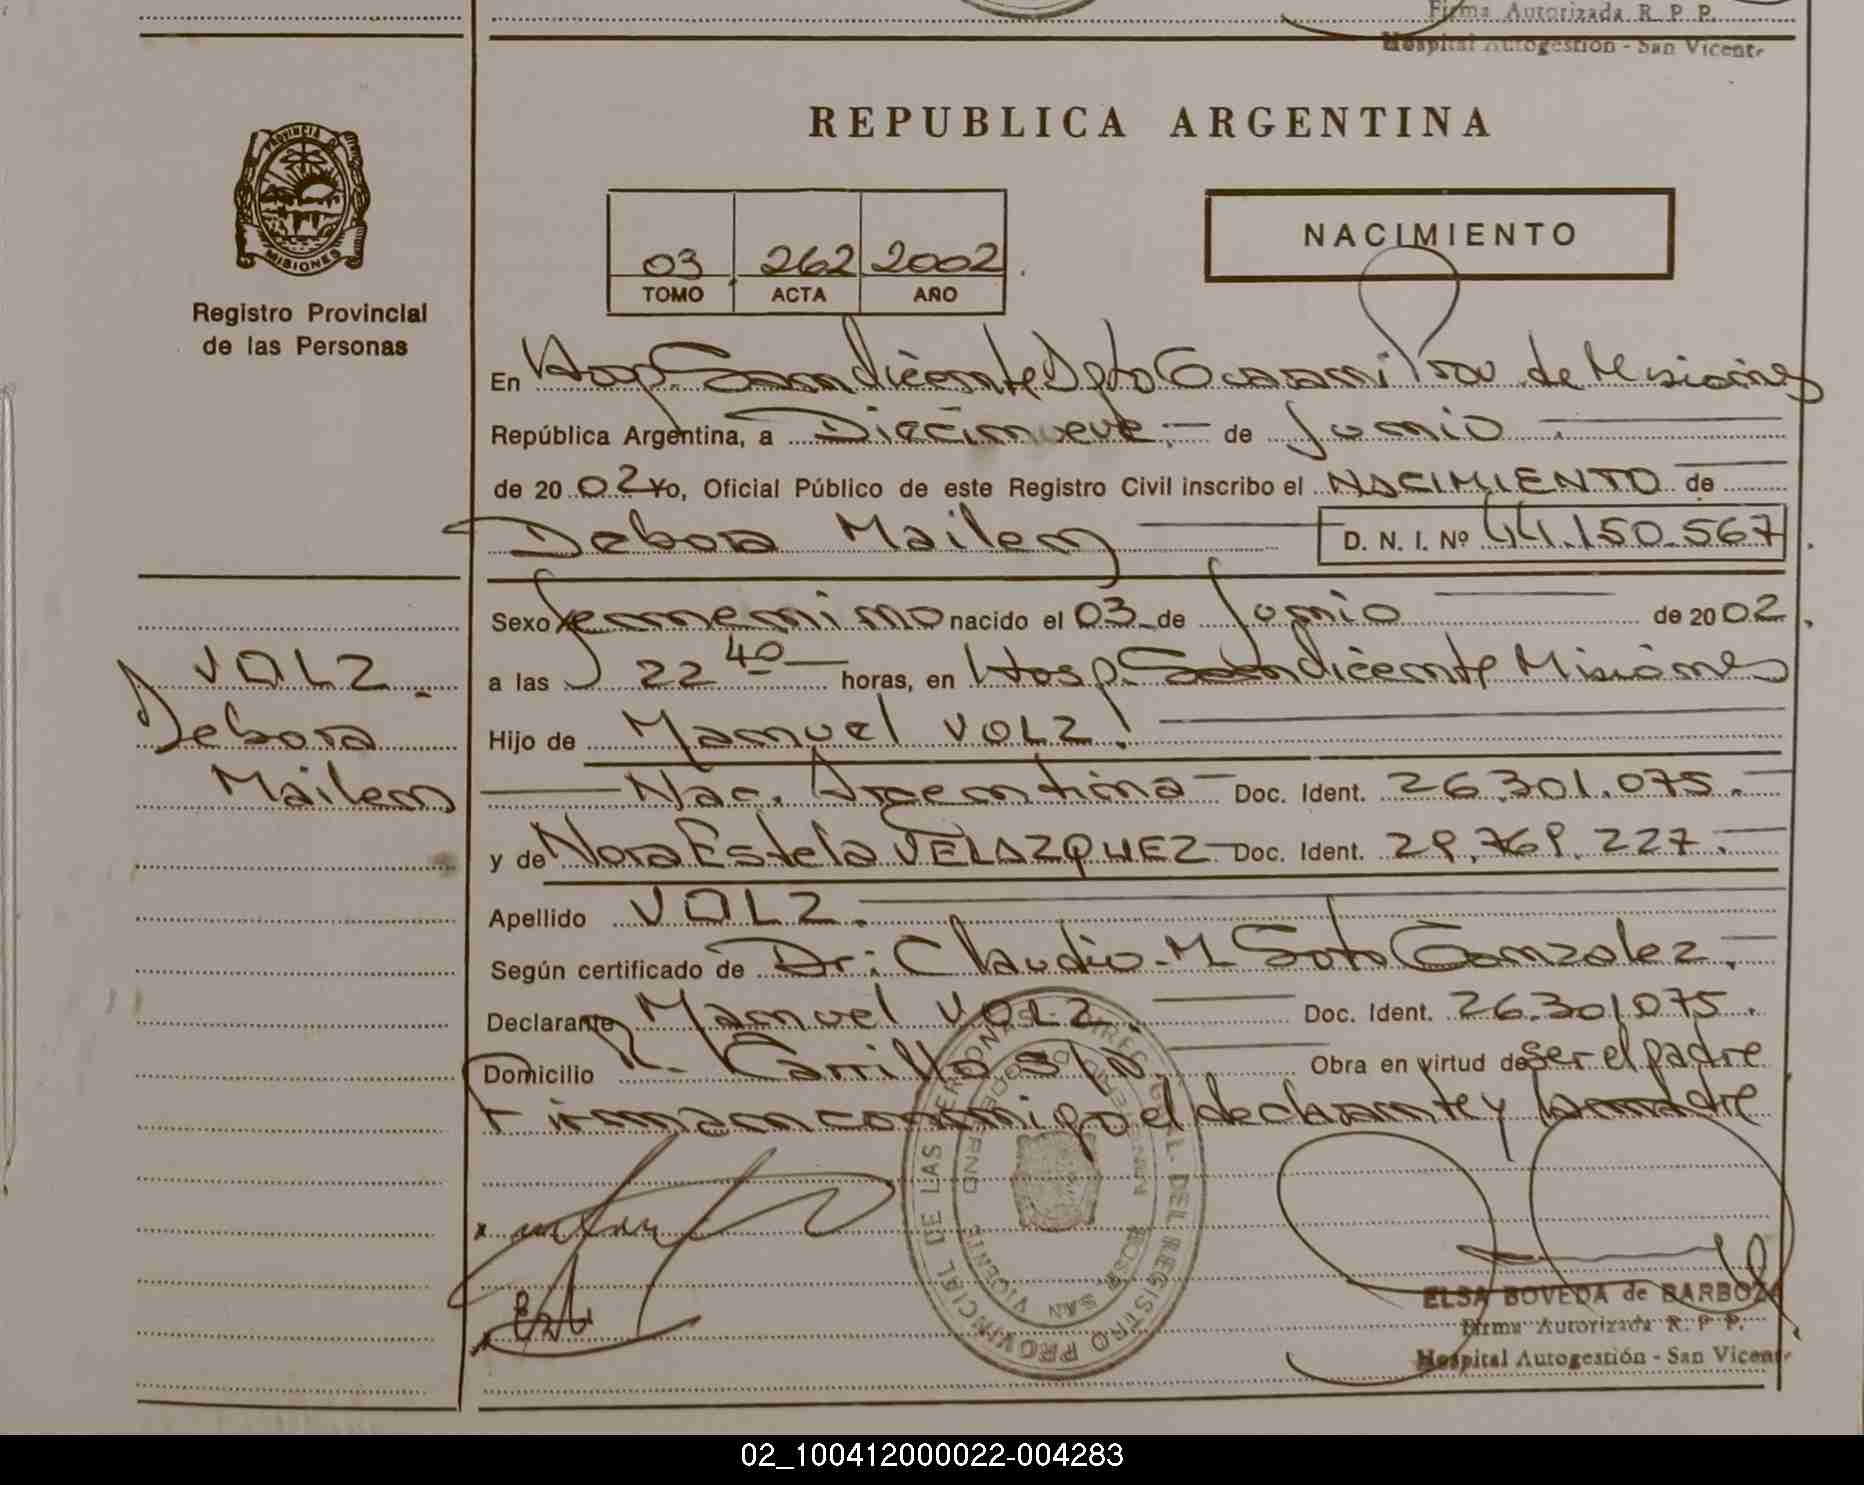 Firma Autorizada R. P. P.
Hospital Autogestión - San Vicente
REPUBLICA ARGENTINA
PROVINCIA DE
MISIONES
Registro Provincial
de las Personas
03 262 2002
TOMO ACTA AÑO
NACIMIENTO
En Hosp. San Vicente Dpto Guarani Prov de Misiones
República Argentina, a Diecinueve.- de Junio
de 2002 Yo, Oficial Público de este Registro Civil inscribo el NACIMIENTO de
Debora Mailen D. N. I. Nº 44.150.567
Sexo femenino nacido el 03 de Junio de 2002.
a las 22 40 horas, en Hosp. San Vicente Misiones
VOLZ.
Debora
Mailen
Hijo de Manuel VOLZ
Nac. Argentina Doc. Ident. 26.301.075.
y de Nora Estela VELAZQUEZ Doc. Ident. 227.
Apellido VOLZ.
Según certificado de Dr: Claudio M Soto Gonzalez.
Declarante Manuel VOLZ. Doc. Ident. 26.301.075.
Domicilio R. Carrillo s/n. Obra en virtud de ser el padre
Firman conmigo el declarante y la madre
DIREC. GRAL. DEL REGISTRO PROVINCIAL DE LAS PERSONAS
HOSP. SAN VICENTE
ELSA BOVEDA de BARBOZA
Firma Autorizada R. P. P.
Hospital Autogestión - San Vicente
02_100412000022-004283